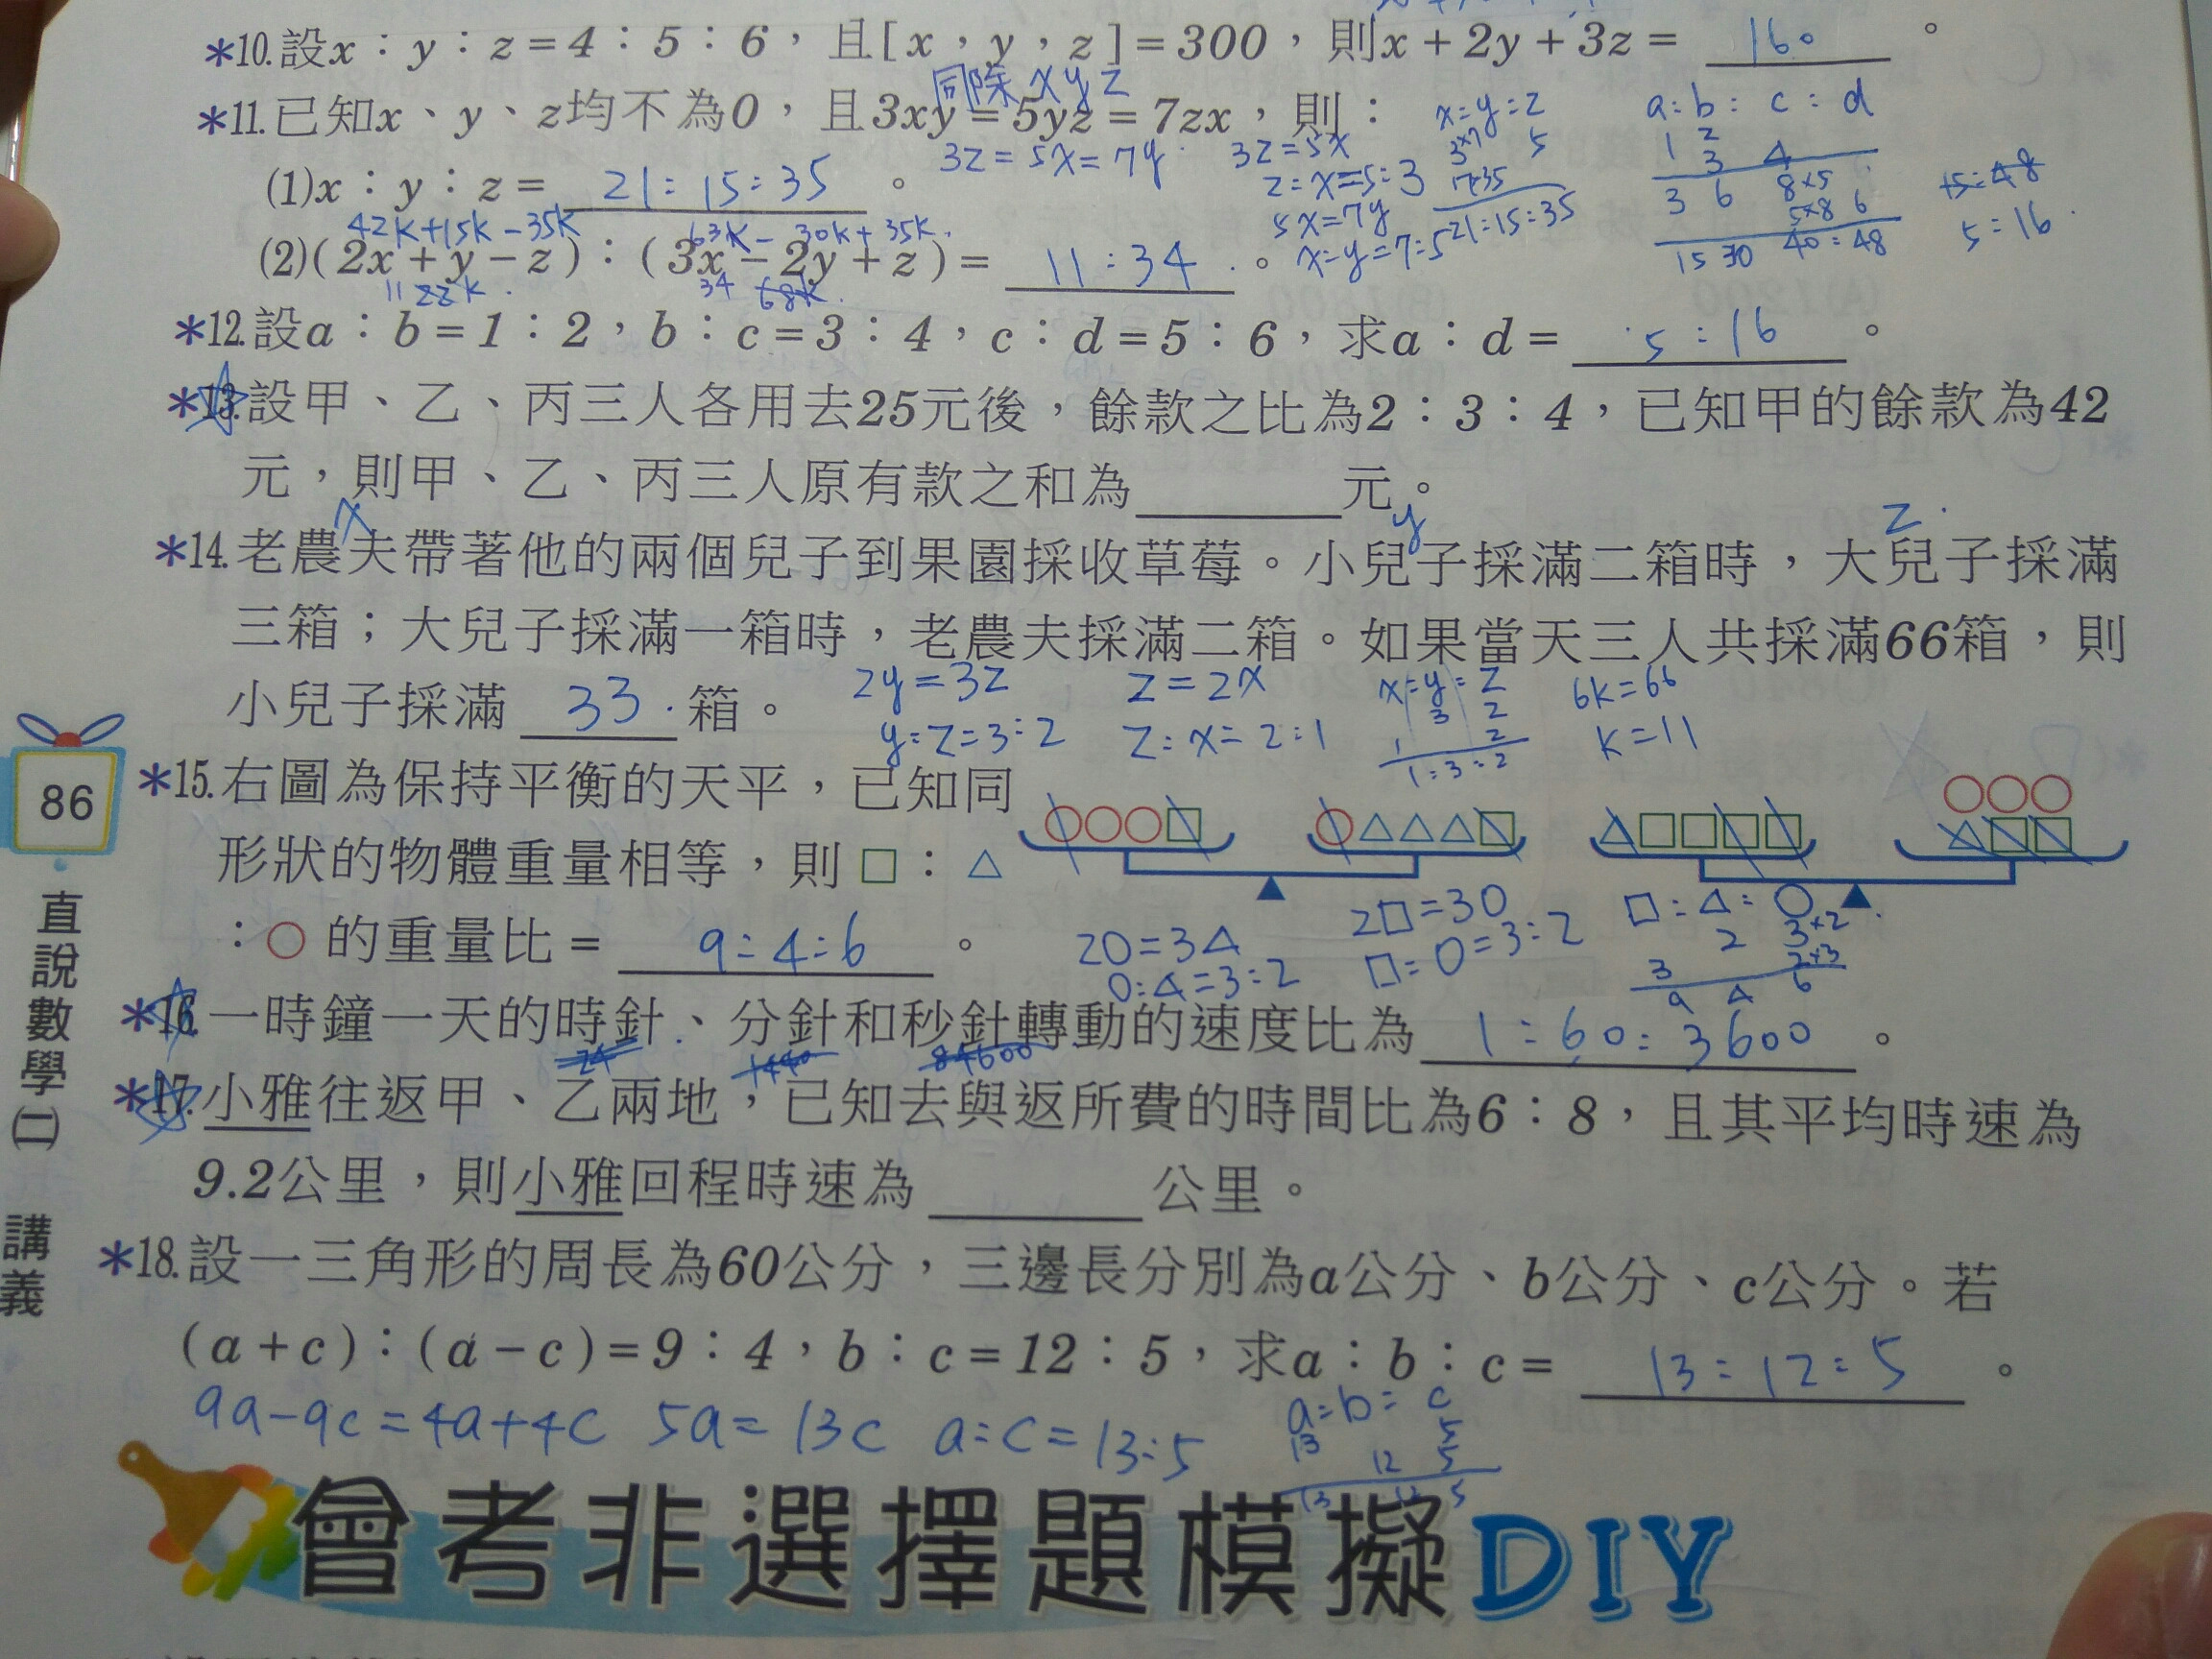 *10.設x：y：z＝4：5：6，且[x，y，z]＝300，則x＋2y＋3z＝ 160 。
同除xyz
*11.已知x、y、z均不為0，且3xy＝5yz＝7zx，則：
3z=5x=7y
3z=5x
z:x=5:3
5x=7y
x:y=7:5
x:y:z
3×7 5
7×3 5
21:15:35
(1)x：y：z＝ 21:15:35 。
42k+15k-35k 63k-30k+35k
(2)(2x＋y－z)：(3x－2y＋z)＝ 11:34 。
11 22k 34 68k
a:b:c:d
1 2
3 4
3 6 8×5
5×8 6
15 30 40:48
15:48
5:16
*12.設a：b＝1：2，b：c＝3：4，c：d＝5：6，求a：d＝ 5:16 。
*13.設甲、乙、丙三人各用去25元後，餘款之比為2：3：4，已知甲的餘款為42
元，則甲、乙、丙三人原有款之和為 元。
x y z
*14.老農夫帶著他的兩個兒子到果園採收草莓。小兒子採滿二箱時，大兒子採滿
三箱；大兒子採滿一箱時，老農夫採滿二箱。如果當天三人共採滿66箱，則
小兒子採滿 33 箱。
2y=3z
y:z=3:2
z=2x
z:x=2:1
x:y:z
3 2
1 2
1:3:2
6k=66
k=11
86
*15.右圖為保持平衡的天平，已知同
形狀的物體重量相等，則□：△
：○的重量比＝ 9:4:6 。
2○=3△
○:△=3:2
2□=3○
□:○=3:2
□:△:○
2 3×2
3 2×3
9 4 6
*16.一時鐘一天的時針、分針和秒針轉動的速度比為 1:60:3600 。
24 1440 84600
*17.小雅往返甲、乙兩地，已知去與返所費的時間比為6：8，且其平均時速為
9.2公里，則小雅回程時速為 公里。
*18.設一三角形的周長為60公分，三邊長分別為a公分、b公分、c公分。若
(a＋c)：(a－c)＝9：4，b：c＝12：5，求a：b：c＝ 13:12:5 。
9a-9c=4a+4c 5a=13c a:c=13:5
a:b:c
13 5
12 5
13 12 5
直說數學(二) 講義
會考非選擇題模擬DIY